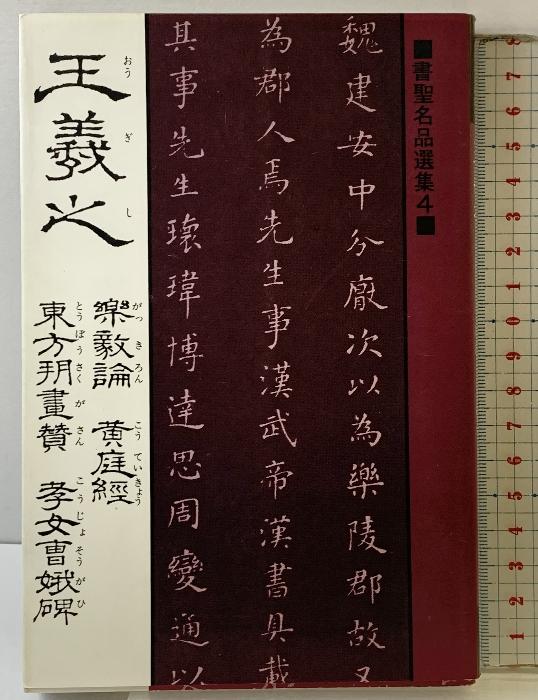 ■書聖名品選集4■
魏建安中分厭次以為樂陵郡故又
為郡人焉先生事漢武帝漢書具載
其事先生瓌瑋博達思周變通以
王羲之
おう ぎ し
樂毅論 黄庭經
がっ き ろん こう てい きょう
東方朔畫贊 孝女曹娥碑
とう ぼう さく が さん こう じょ そう が ひ
1 2 3 4 5 6 7 8 9 0 1 2 3 4 5 6 7 8